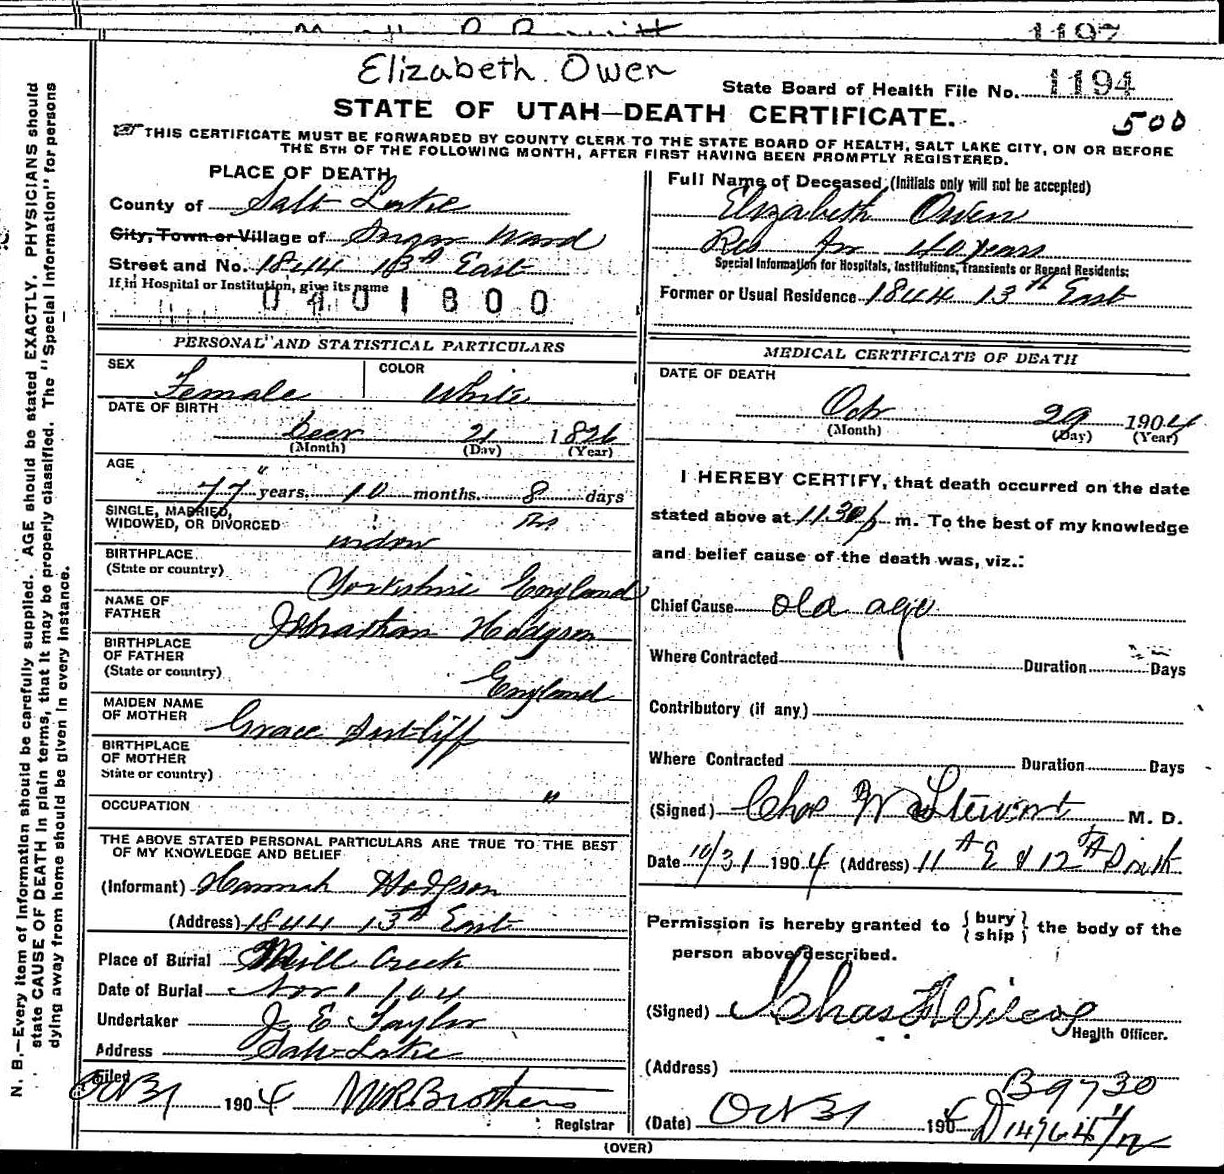 1197
Elizabeth Owen
State Board of Health File No. 1194
STATE OF UTAH—DEATH CERTIFICATE.
500
THIS CERTIFICATE MUST BE FORWARDED BY COUNTY CLERK TO THE STATE BOARD OF HEALTH, SALT LAKE CITY, ON OR BEFORE
THE 5TH OF THE FOLLOWING MONTH, AFTER FIRST HAVING BEEN PROMPTLY REGISTERED.
PLACE OF DEATH
County of Salt Lake
City, Town or Village of Sugar Ward
Street and No. 1844 13th East
If in Hospital or Institution, give its name
0401800
Full Name of Deceased (Initials only will not be accepted)
Elizabeth Owen
Res 40 years
Special Information for Hospitals, Institutions, Transients or Recent Residents:
Former or Usual Residence 1844 13th East
PERSONAL AND STATISTICAL PARTICULARS
SEX Female COLOR White
DATE OF BIRTH
Decr 21 1826
(Month) (Day) (Year)
AGE
77 years, 10 months. 8 days
SINGLE, MARRIED,
WIDOWED, OR DIVORCED
widow
BIRTHPLACE
(State or country)
Yorkshire England
NAME OF
FATHER
Johnathan Hodgson
BIRTHPLACE
OF FATHER
(State or country)
England
MAIDEN NAME
OF MOTHER
Grace Sutcliff
BIRTHPLACE
OF MOTHER
State or country)
"
OCCUPATION
THE ABOVE STATED PERSONAL PARTICULARS ARE TRUE TO THE BEST
OF MY KNOWLEDGE AND BELIEF
(Informant) Hannah Hodgson
(Address) 1844 13th East
Place of Burial Mill Creek
Date of Burial Nov 1 / 04
Undertaker J. E Taylor
Address Salt Lake
Filed
Oct 31 1904 M R Brothers
Registrar
MEDICAL CERTIFICATE OF DEATH
DATE OF DEATH
Oct 29 1904
(Month) (Day) (Year)
I HEREBY CERTIFY, that death occurred on the date
stated above at 11.30 p m. To the best of my knowledge
and belief cause of the death was, viz.:
Chief Cause old age
Where Contracted Duration Days
Contributory (if any)
Where Contracted Duration Days
(Signed) Chas W Stewart M. D.
Date 10/31 1904 (Address) 11th E & 12th South
Permission is hereby granted to {bury} the body of the
{ship}
person above described.
(Signed) Chas F Wilcox
Health Officer.
(Address)
B9730
(Date) Oct 31 1904
(OVER)
N. B.—Every item of information should be carefully supplied. AGE should be stated EXACTLY. PHYSICIANS should
state CAUSE OF DEATH in plain terms, that it may be properly classified. The "Special Information" for persons
dying away from home should be given in every instance.